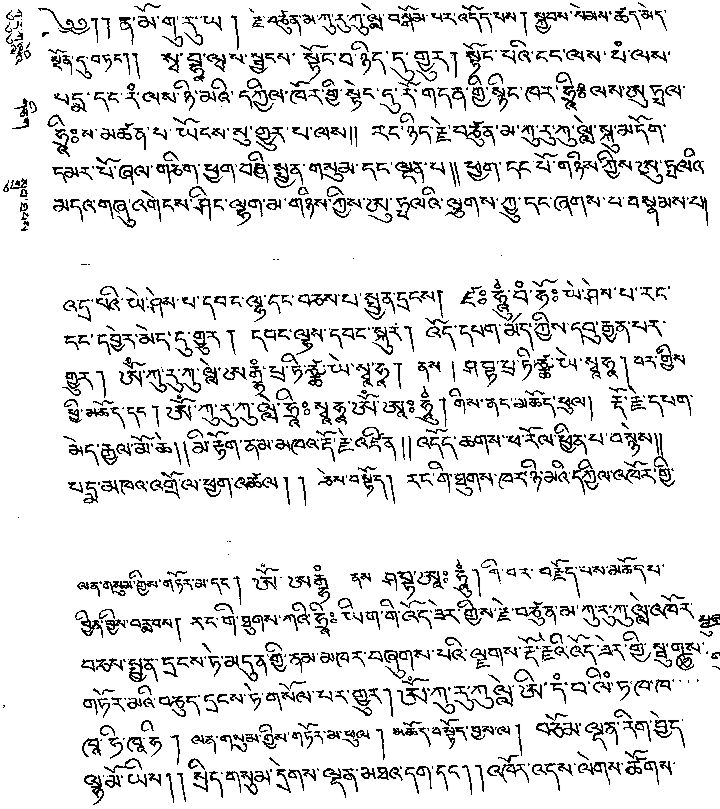 ༄༅།། ན་མོ་གུ་རུ་ཡ། རྗེ་བཙུན་མ་ཀུ་རུ་ཀུ་ལླེ་བསྒོམ་པར་འདོད་པས། སྐྱབས་སེམས་ཚད་མེད་
སྔོན་དུ་བཏང་། སྭ་བྷཱ་ཝས་སྦྱངས་ སྟོང་པ་ཉིད་དུ་གྱུར། སྟོང་པའི་ངང་ལས་པཾ་ལས་
པདྨ་དང་རཾ་ལས་ཉི་མའི་དཀྱིལ་འཁོར་གྱི་སྟེང་དུ་རོ་གདན་གྱི་སྙིང་ཁར་ཧྲཱིཿལས་ཨུཏྤལ་
ཧྲཱིཿས་མཚན་པ་ཡོངས་སུ་གྱུར་པ་ལས།། རང་ཉིད་རྗེ་བཙུན་མ་ཀུ་རུ་ཀུ་ལླེ་སྐུ་མདོག་
དམར་པོ་ཞལ་གཅིག་ཕྱག་བཞི་སྤྱན་གསུམ་དང་ལྡན་པ།། ཕྱག་དང་པོ་གཉིས་ཀྱིས་ཨུཏྤལའི་
མདའ་གཞུ་འགེངས་ཤིང་ལྷག་མ་གཉིས་ཀྱིས་ཨུཏྤལའི་ལྕགས་ཀྱུ་དང་ཞགས་པ་བསྣམས་པ།
འདྲ་བའི་ཡེ་ཤེས་པ་དབང་ལྷ་དང་བཅས་པ་སྤྱན་དྲངས། ཛཿཧཱུྃ་བཾ་ཧོཿཡེ་ཤེས་པ་རང་
དང་དབྱེར་མེད་དུ་གྱུར། དབང་ལྷས་དབང་སྐུར། འོད་དཔག་མེད་ཀྱིས་དབུ་རྒྱན་པར་
གྱུར། ཨོཾ་ཀུ་རུ་ཀུ་ལླེ་ཨརྒྷཾ་པྲ་ཏཱི་ཙྪ་ཡེ་སྭཱཧཱ། ནས། ཤབྟ་པྲ་ཏཱི་ཙྪ་ཡེ་སྭཱཧཱ། བར་གྱིས
ཕྱི་མཆོད་དང་། ཨོཾ་ཀུ་རུ་ཀུ་ལླེ་ཧྲཱིཿསྭཱཧཱ་ཨོཾ་ཨཱཿཧཱུྃ། གིས་ནང་མཆོད་ཕུལ། རྡོ་རྗེ་དཔག་
མེད་རྒྱལ་མོ་ཆེ།། མི་རྟོག་ནམ་མཁའ་རྡོ་རྗེ་འཛིན།། འདོད་ཆགས་ཕ་རོལ་ཕྱིན་པ་བརྙེས།།
པདྨ་མཁའ་འགྲོ་ལ་ཕྱག་འཚལ།། ཅེས་བསྟོད། རང་གི་ཐུགས་ཁར་ཉི་མའི་དཀྱིལ་འཁོར་གྱི་
ལན་གསུམ་གྱིས་གཏོར་མ་དང་། ཨོཾ་ཨརྒྷཾ་ ནས་ ཤབྟ་ཨཱཿཧཱུྃ། གི་བར་བརྗོད་པས་མཆོད་པ་
བྱིན་གྱིས་བརླབས། རང་གི་ཐུགས་ཀའི་ཧྲཱིཿཡིག་གི་འོད་ཟེར་གྱིས་རྗེ་བཙུན་མ་ཀུ་རུ་ཀུ་ལླེ་འཁོར་
བཅས་སྤྱན་དྲངས་ཏེ་མདུན་གྱི་ནམ་མཁར་བཞུགས་པའི་ལྗགས་རྡོ་རྗེའི་འོད་ཟེར་གྱི་སྦུ་གུས་
གཏོར་མའི་བཅུད་དྲངས་ཏེ་གསོལ་པར་གྱུར། ཨོཾ་ཀུ་རུ་ཀུ་ལླེ་ཨི་དཾ་བ་ལིཾ་ཏ་ཁ་ཁ་
ཁཱ་ཧི་ཁཱ་ཧི། ལན་གསུམ་གྱིས་གཏོར་མ་ཕུལ། མཆོད་བསྟོད་བྱས་ལ། བཅོམ་ལྡན་རིག་བྱེད་
ལྷ་མོ་ཡིས།། སྲིད་གསུམ་དྲེགས་ལྡན་མཐའ་དག་དང་།། འཁོར་འདས་ལེགས་ཚོགས་